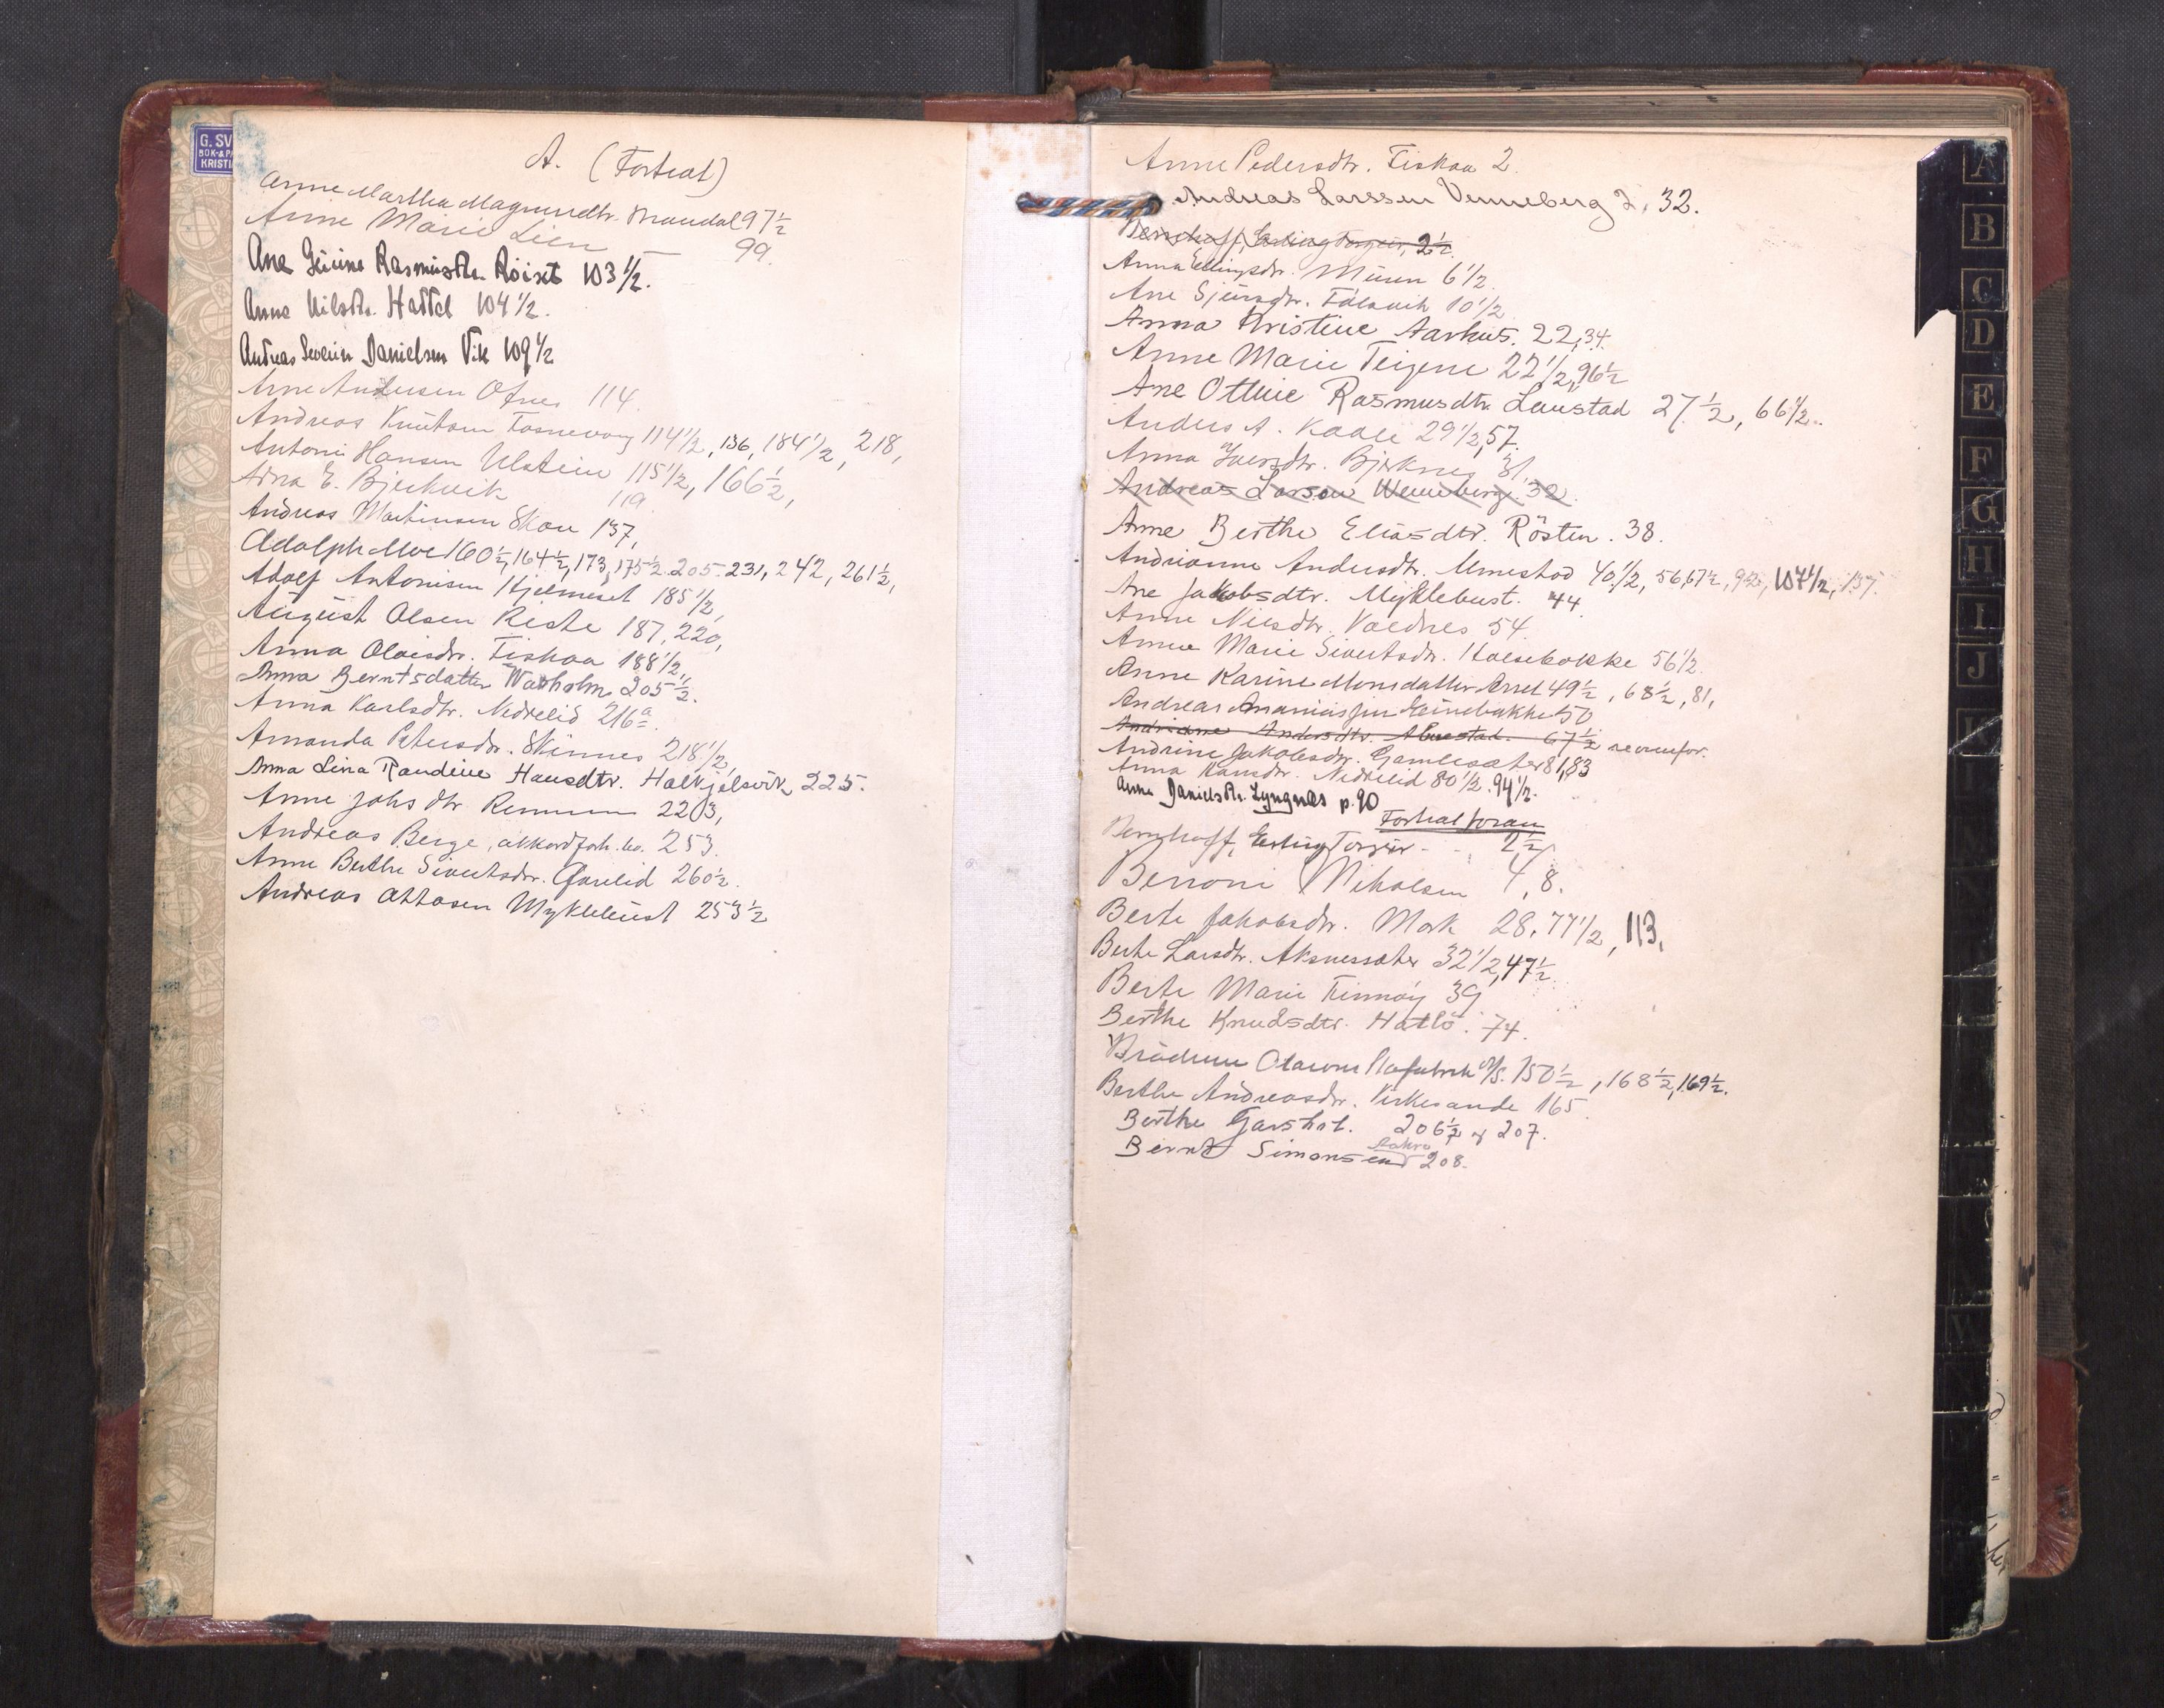 G. SV
BOK- & P
KRISTI
A. (Fortsat)
Anne Martha Magnusdtr. Mandal 97 1/2
Anne Marie Lien — 99.
Ane Rasmusdtr. Röiset 103 1/2.
Anne Nilsdtr. Hatlel 104 1/2.
Andreas Severin Danielsen Vik 109 1/2
Arne Andersen Ofnes 114.
Andreas Knutsen Tosnevong 114 1/2, 136, 184 1/2, 218,
Antoni Hansen Ulstein 115 1/2, 166 1/2,
E. Bjerkvik 119
Andreas Martinsen Skou 137,
Adolph Moe 160 1/2, 164 1/2, 173, 175 1/2. 205. 231, 242, 261 1/2,
Adolf Antonisen Hjelmeset 185 1/2,
August Olsen Riste 187, 220,
Anna Olaisdr. Fiskaa 188 1/2,
Anna Berntsdatter Warholm 205 1/2.
Anna Karlsdtr. Nedrelid 216 a.
Amanda Petersdr. Skinnes 218 1/2,
Anna Lina Raudine Hansdtr. Halkjelsvik 225.
Anne Johs dtr 223,
Andreas Berge, akkordforh. 253.
Anne Berthe Sivertsdr. 260 1/2.
Andreas Ottosen Myklebust 253 1/2
Anne Pedersdtr. Fiskaa 2.
Andreas Larssen Venneberg 2, 32.
Bernhoff, Erling Torgeir, 2 1/2.
Anna Ellingsdr. Muren 6 1/2.
Ane Sjursdtr. 10 1/2
Anna Kristine Aarhus. 22, 34.
Anne Marie Teigene 22 1/2, 96 1/2
Ane Otthie Rasmusdtr. Laustad 27 1/2, 66 1/2.
Anders A. Kaale 29 1/2, 57.
Anna Iversdtr. Bjerknes 31,
Andreas Larsen Wenneberg. 32.
Anne Berthe Eliasdtr. Rösten. 38.
Andrianne Andersdtr. Almestad 40 1/2, 56, 67 1/2, 92, 107 1/2, 137.
Ane Jakobsdtr. Myklebust. 44.
Anne Nilsdtr. Voldnes 54.
Anne Marie Sivertsdr. Holsebakke 56 1/2.
Anne Karine Monsdatter Arset 49 1/2, 68 1/2, 81,
Andreas Ananiassen 50
Andriane Andersdtr. Almestad. 67 1/2 se ovenfor.
Andrine Jakobsdr. Gamlesæter 81, 83
Anna Hansdr. Nedrelid 80 1/2. 94 1/2.
Anne Danielsdtr. Lyngnes p. 90
Fortsat foran
Bernhoff, Erling Torgeir - - 2 1/2
Benoni Nikolsen 4, 8.
Berte Jakobsdr. Mork 28, 77 1/2, 113,
Berte Larsdtr. Aksnessæter 32 1/2, 47 1/2
Berte Marie Finnøy 39
Berthe Knudsdtr. Hatlö. 74.
Brödrene A/S. 150 1/2, 168 1/2, 169 1/2.
Berthe Andreasdr. Kirkesande 165.
Berthe Garshol. 206 1/2 og 207.
Bernt Simonsen Aakre 208.
A
B
C
D
E
F
G
H
I
J
K
W